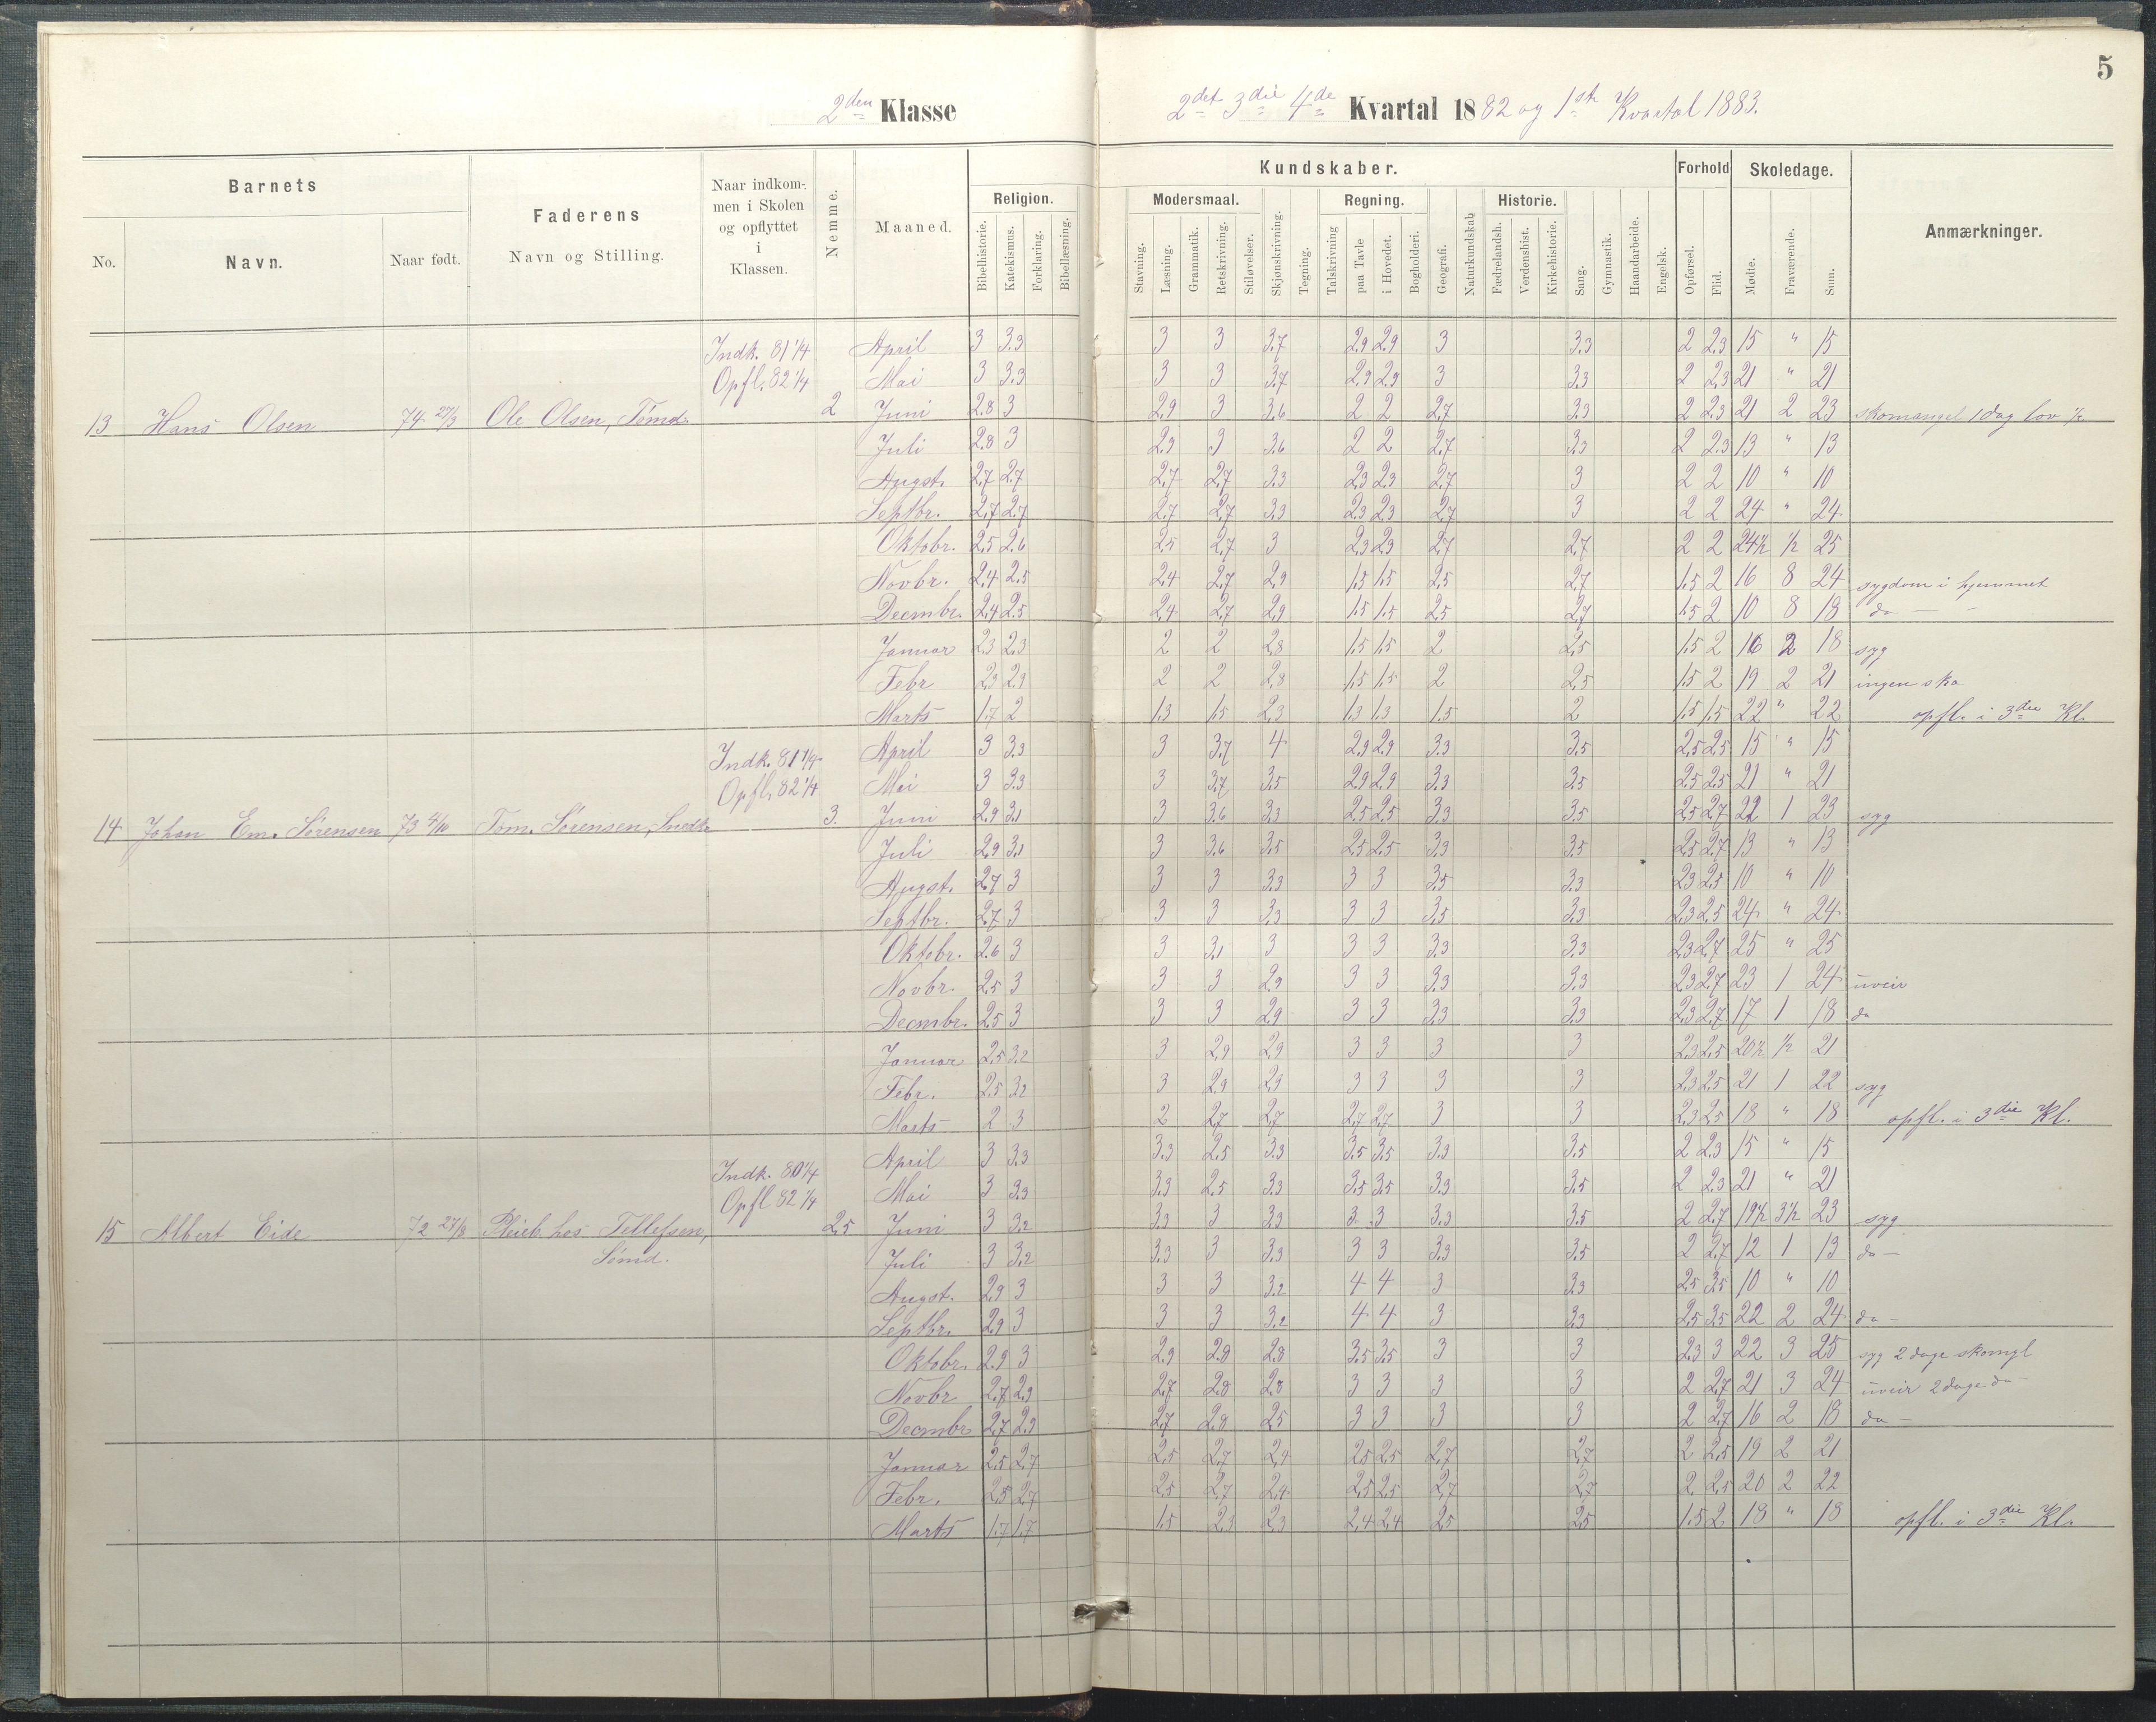 5
2den Klasse
2det 3die 4de Kvartal 1882 og 1ste Kvartal 1883.
Barnets
No.
Navn.
Naar født.
Faderens
Navn og Stilling.
Naar indkom-
men i Skolen
og opflyttet
i
Klassen.
Nemme.
Maaned.
Religion.
Bibelhistorie.
Katekismus.
Forklaring.
Bibellæsning.
Kundskaber.
Modersmaal.
Stavning.
Læsning.
Grammatik.
Retskrivning.
Stiløvelser.
Skjønskrivning.
Tegning.
Regning.
Talskrivning
paa Tavle
i Hovedet.
Bogholderi.
Geografi.
Naturkundskab
Historie.
Fædrelandsh.
Verdenshist.
Kirkehistorie.
Sang.
Gymnastik.
Haandarbeide.
Engelsk.
Forhold
Opførsel.
Flid.
Skoledage.
Mødte.
Fraværende.
Sum.
Anmærkninger.
Indk. 81 1/4
Opfl. 82 1/4
13 Hans Olsen 74 27/3 Ole Olsen, Tømd. 2
April 3 3.3 3 3 3.7 2.9 2.9 3 3.3 2 2.3 15 " 15
Mai 3 3.3 3 3 3.7 2.9 2.9 3 3.3 2 2.3 21 " 21
Juni 2.8 3 2.9 3 3.6 2 2 2.7 3.3 2 2.3 21 2 23 skomangel 1 dag lov 1/2
Juli 2.8 3 2.9 3 3.6 2 2 2.7 3.3 2 2.3 13 " 13
Augst. 2.7 2.7 2.7 2.7 3.3 2.3 2.3 2.7 3 2 2 10 " 10
Septbr. 2.7 2.7 2.7 2.7 3.3 2.3 2.3 2.7 3 2 2 24 " 24
Oktobr. 2.5 2.6 2.5 2.7 3 2.3 2.3 2.7 2.7 2 2 24 1/2 1/2 25
Novbr. 2.4 2.5 2.4 2.7 2.9 1.5 1.5 2.5 2.7 1.5 2 16 8 24 sygdom i hjemmet
Decmbr. 2.4 2.5 2.4 2.7 2.9 1.5 1.5 2.5 2.7 1.5 2 10 8 18 do — -
Januar 2.3 2.3 2 2 2.8 1.5 1.5 2 2.5 1.5 2 16 2 18 syg
Febr 2.3 2.3 2 2 2.8 1.5 1.5 2 2.5 1.5 2 19 2 21 ingen sko
Marts 1.7 2 1.3 1.5 2.3 1.3 1.3 1.5 2 1.5 1.5 22 " 22 opfl. i 3die Kl.
Indk. 81 1/4
Opfl. 82 1/4
14 Johan Em. Sørensen 73 4/10 Tom. Sørensen, Snedk. 3.
April 3 3.3 3 3.7 4 2.9 2.9 3.3 3.5 2.5 2.5 15 " 15
Mai 3 3.3 3 3.7 3.5 2.9 2.9 3.3 3.5 2.5 2.5 21 " 21
Juni 2.9 3.1 3 3.6 3.3 2.5 2.5 3.3 3.5 2.5 2.7 22 1 23 syg
Juli 2.9 3.1 3 3.6 3.5 2.5 2.5 3.3 3.5 2.5 2.7 13 " 13
Augst. 2.7 3 3 3 3.3 3 3 3.5 3.3 2.3 2.5 10 " 10
Septbr. 2.7 3 3 3 3.3 3 3 3.5 3.3 2.3 2.5 24 " 24
Oktobr. 2.6 3 3 3.1 3 3 3 3.3 3.3 2.3 2.7 25 " 25
Novbr. 2.5 3 3 3 2.9 3 3 3.3 3.3 2.3 2.7 23 1 24 uveir
Decmbr. 2.5 3 3 3 2.9 3 3 3.3 3.3 2.3 2.7 17 1 18 do
Januar 2.5 3.2 3 2.9 2.9 3 3 3 3 2.3 2.5 20 1/2 1/2 21
Febr. 2.5 3.2 3 2.9 2.9 3 3 3 3 2.3 2.5 21 1 22 syg
Marts 2 3 2 2.7 2.7 2.7 2.7 3 3 2.3 2.5 18 " 18 opfl. i 3die Kl.
Indk. 80 1/4
Opfl 82 1/4
15 Albert Eide 72 27/8 Pleieb. hos Tellefsen, 2.5
Sømd.
April 3 3.3 3.3 2.5 3.3 3.5 3.5 3.3 3.5 2 2.3 15 " 15
Mai 3 3.3 3.3 2.5 3.3 3.5 3.5 3.3 3.5 2 2.3 21 " 21
Juni 3 3.2 3.3 3 3.3 3 3 3.3 3.5 2 2.7 19 1/2 3 1/2 23 syg
Juli 3 3.2 3.3 3 3.3 3 3 3.3 3.5 2 2.7 12 1 13 do —
Augst. 2.9 3 3 3 3.2 4 4 3 3.3 2.5 3.5 10 " 10
Septbr. 2.9 3 3 3 3.2 4 4 3 3.3 2.5 3.5 22 2 24 do -
Oktobr. 2.9 3 2.9 2.8 2.8 3.5 3.5 3 3 2.3 3 22 3 25 syg 2 dage skomgl
Novbr 2.7 2.9 2.7 2.8 2.8 3 3 3 3 2 2.7 21 3 24 uveir 2 dage do -
Decmbr 2.7 2.9 2.7 2.8 2.5 3 3 3 3 2 2.7 16 2 18 do —
Januar 2.5 2.7 2.5 2.7 2.4 2.5 2.5 2.7 2.7 2 2.5 19 2 21
Febr. 2.5 2.7 2.5 2.7 2.4 2.5 2.5 2.7 2.7 2 2.5 20 2 22
Marts 1.7 1.7 1.5 2.3 2.3 2.4 2.4 2.5 2.5 1.5 2 18 " 18 opfl. i 3die Kl.